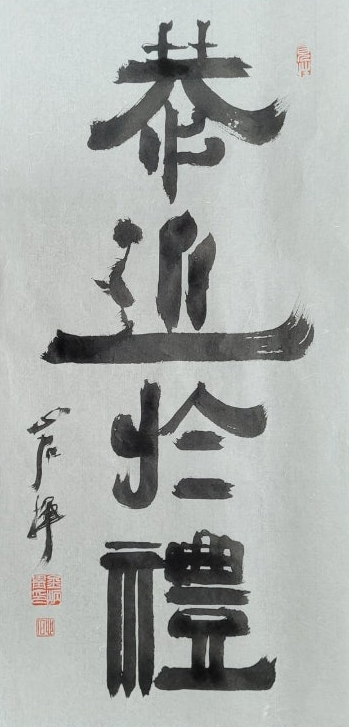 恭近於禮